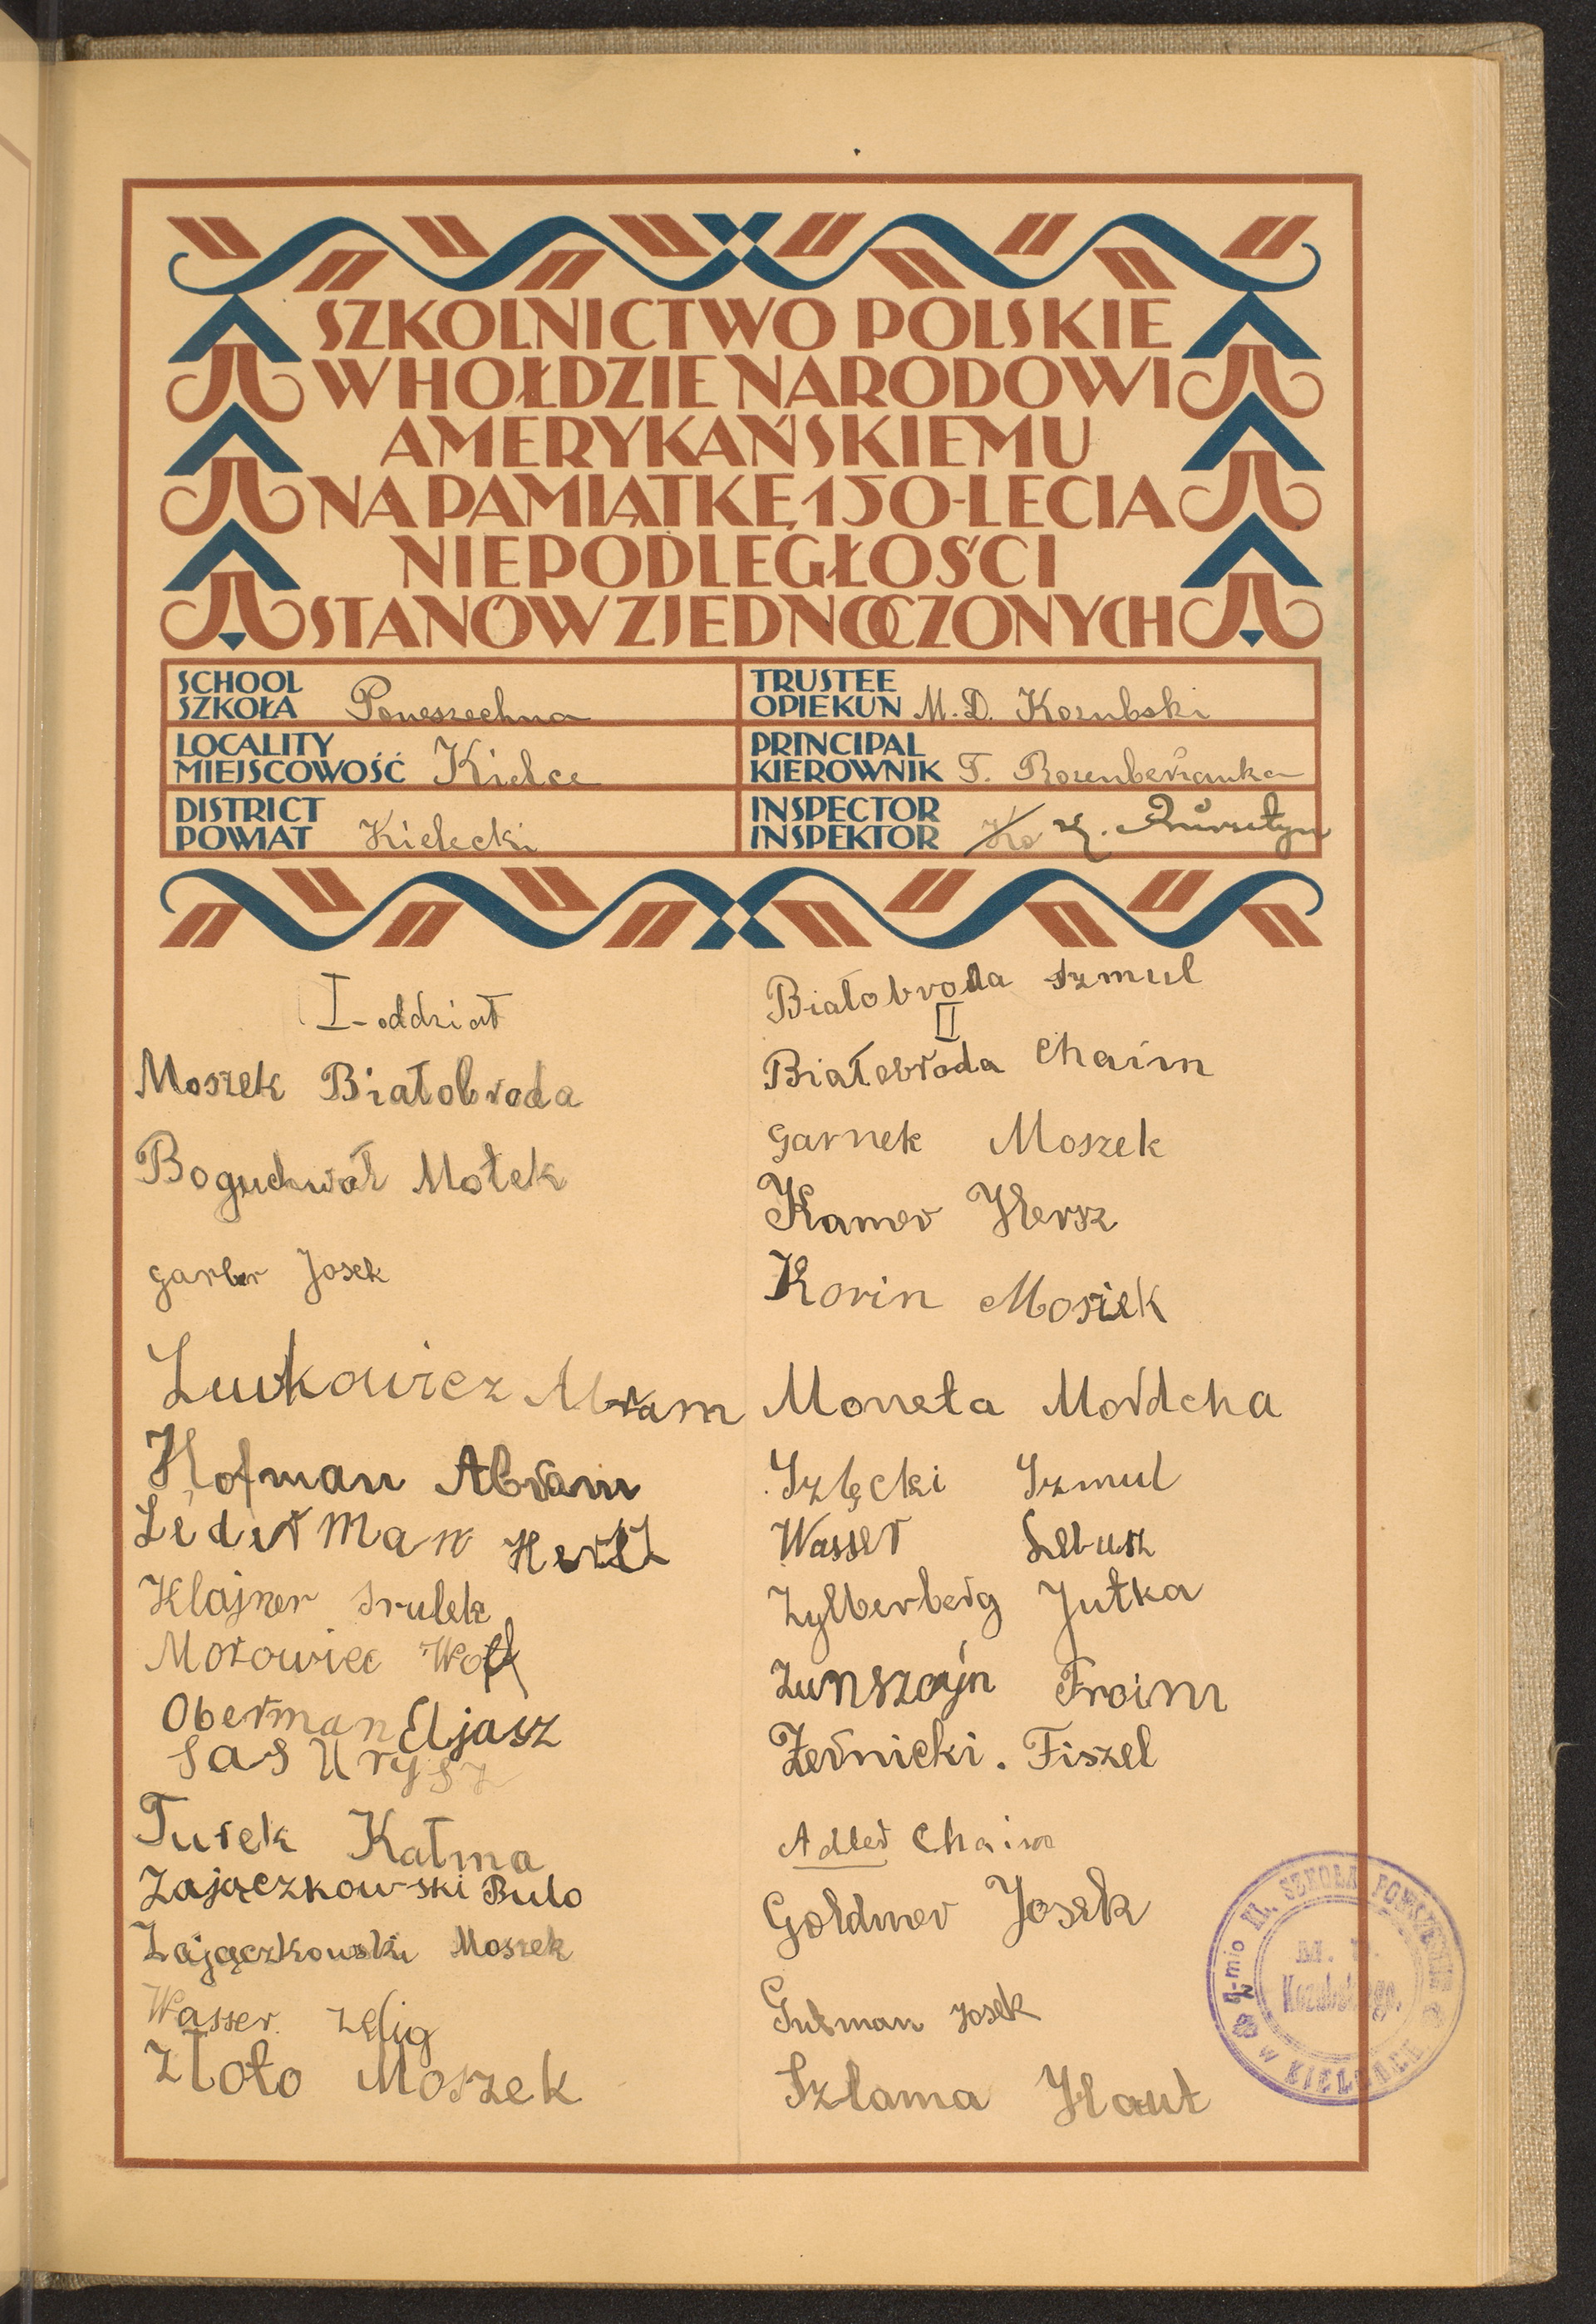 SZKOLNICTWO POLSKIE
W HOŁDZIE NARODOWI
AMERYKAŃSKIEMU
NA PAMIĄTKĘ 150-LECIA
NIEPODLEGŁOŚCI
STANÓW ZJEDNOCZONYCH
SCHOOL
SZKOŁA Powszechna
LOCALITY
MIEJSCOWOŚĆ Kielce
DISTRICT
POWIAT Kielecki
TRUSTEE
OPIEKUN M. D. Kozubski
PRINCIPAL
KIEROWNIK T. Rozenberżanka
INSPECTOR
INSPEKTOR
I-oddział
Moszek Białobroda
Boguchwał Motek
garber Josek
Lewkowicz Abram
Hofman Abram
Lederman Herszl
Klajner Srulek
Morowiec Wolf
Oberman Eljasz
Sas Urysz
Turek Kałma
Zajączkowski Bulo
Zajączkowski Moszek
Wasser Zelig
Złoto Moszek
Białobroda Szmul
II
Białobroda Chaim
garnek Moszek
Kamer Hersz
Korin Mosiek
Moneta Mordcha
Szlęcki Szmul
Wasser Lebusz
Zylberberg Jutka
Zunszajn Froim
Żernicki. Fiszel
Adler Chaim
Goldmer Josek
Gutman Josek
Szlama Haut
7-mio kl. SZKOŁA POWSZECHNA
M. D.
Kozubskiego
w KIELCACH